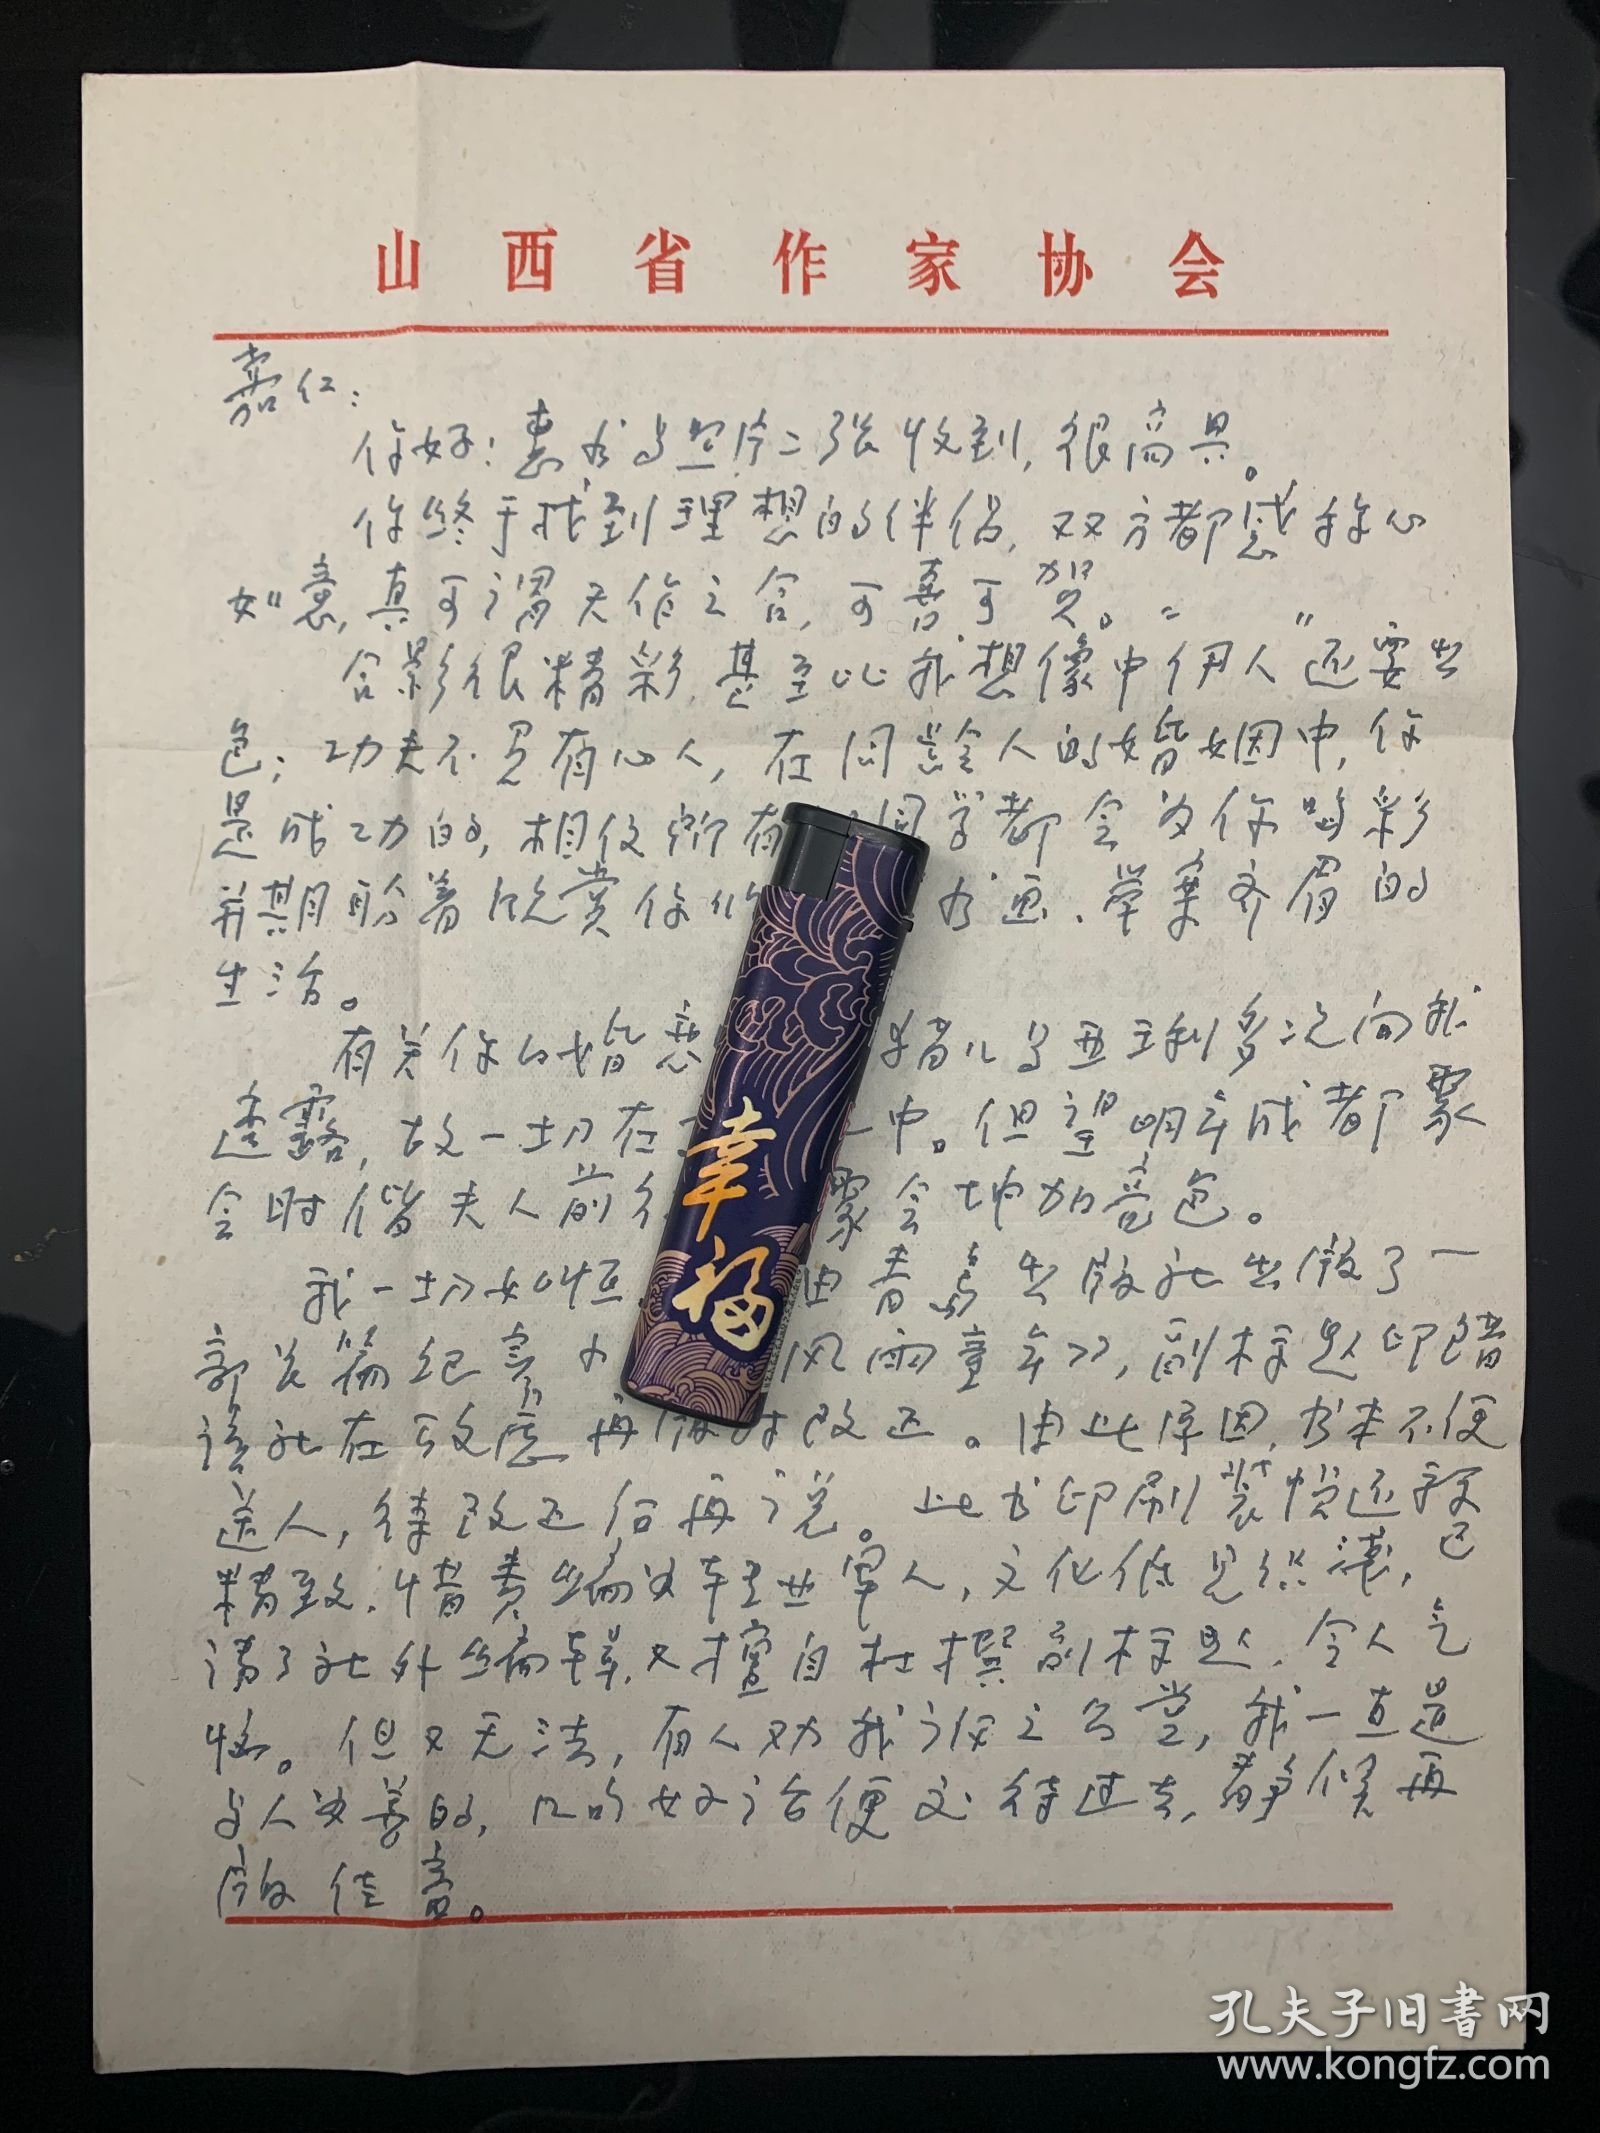 山西省作家协会
嘉红：
你好！惠书与照片二张收到，很高兴。
你终于找到理想的伴侣，双方都感称心
如意，真可谓天作之合，可喜可贺。
合影很精彩，甚至比我想像中"伊人"还要出
色；功夫不负有心人，在同龄人的婚姻中，你
是成功的，相信所有 同学都会为你喝彩
并期盼着欣赏你们 书画、举案齐眉的
生活。
有关你的婚恋 猪儿与亚利多次向我
透露，故一切在 中。但望明年成都聚
会时偕夫人前往 聚会地加亮色。
我一切如恒 由青岛出版社出版了一
部长篇纪实 风雨童年》，副标题印错
该社在致歉 再版时改正。由此停因，书来不便
送人，待改正后再说。此书印刷装帧还算
精致，惜责编为转业军人，文化低见识浅，已
请了社外编辑，又擅自杜撰副标题，令人气
恼。但又无法，有人劝我诉之公堂，我一直是
与人为善的，几句好话便交待过去，静候再
版佳音。
幸福
孔夫子旧书网
www.kongfz.com